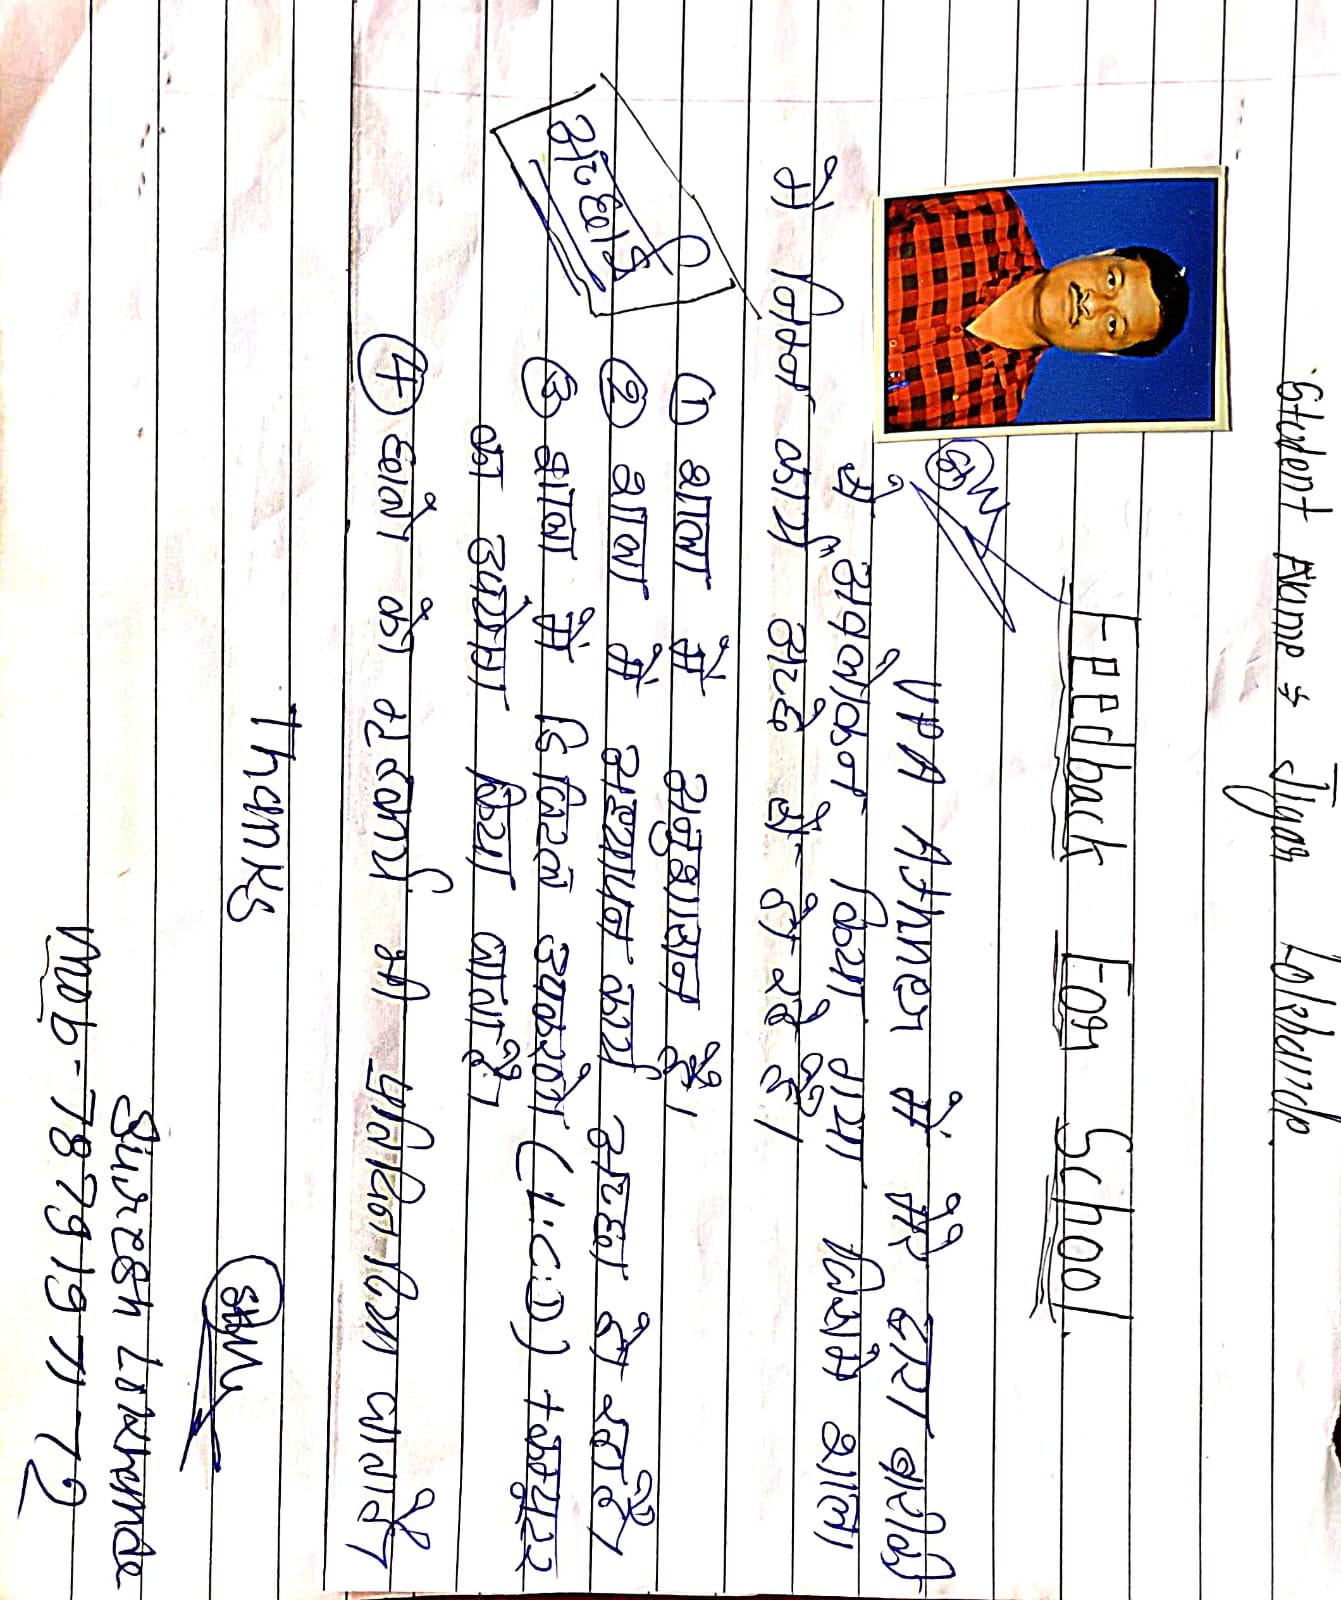 Student Name → Jigar Lokhande.
Feedback For School.
VPA Athner में मेरे द्वारा बारीकी
से अवलोकन किया गया जिसमे शाला
में निम्न कार्य अच्छे से हो रहे है।
अच्छाई
① शाला में अनुशासन है।
② शाला में अध्यापन कार्य अच्छा हो रहा है।
③ शाला में डिजिटल उपकरणो (L.C.D) + कम्प्यूटर
का उपयोग किया जाता है।
④ छात्रो को गृहकार्य भी प्रतिदिन दिया जाता है।
Thanks
Suresh Lokhande
Mob - 7879197172